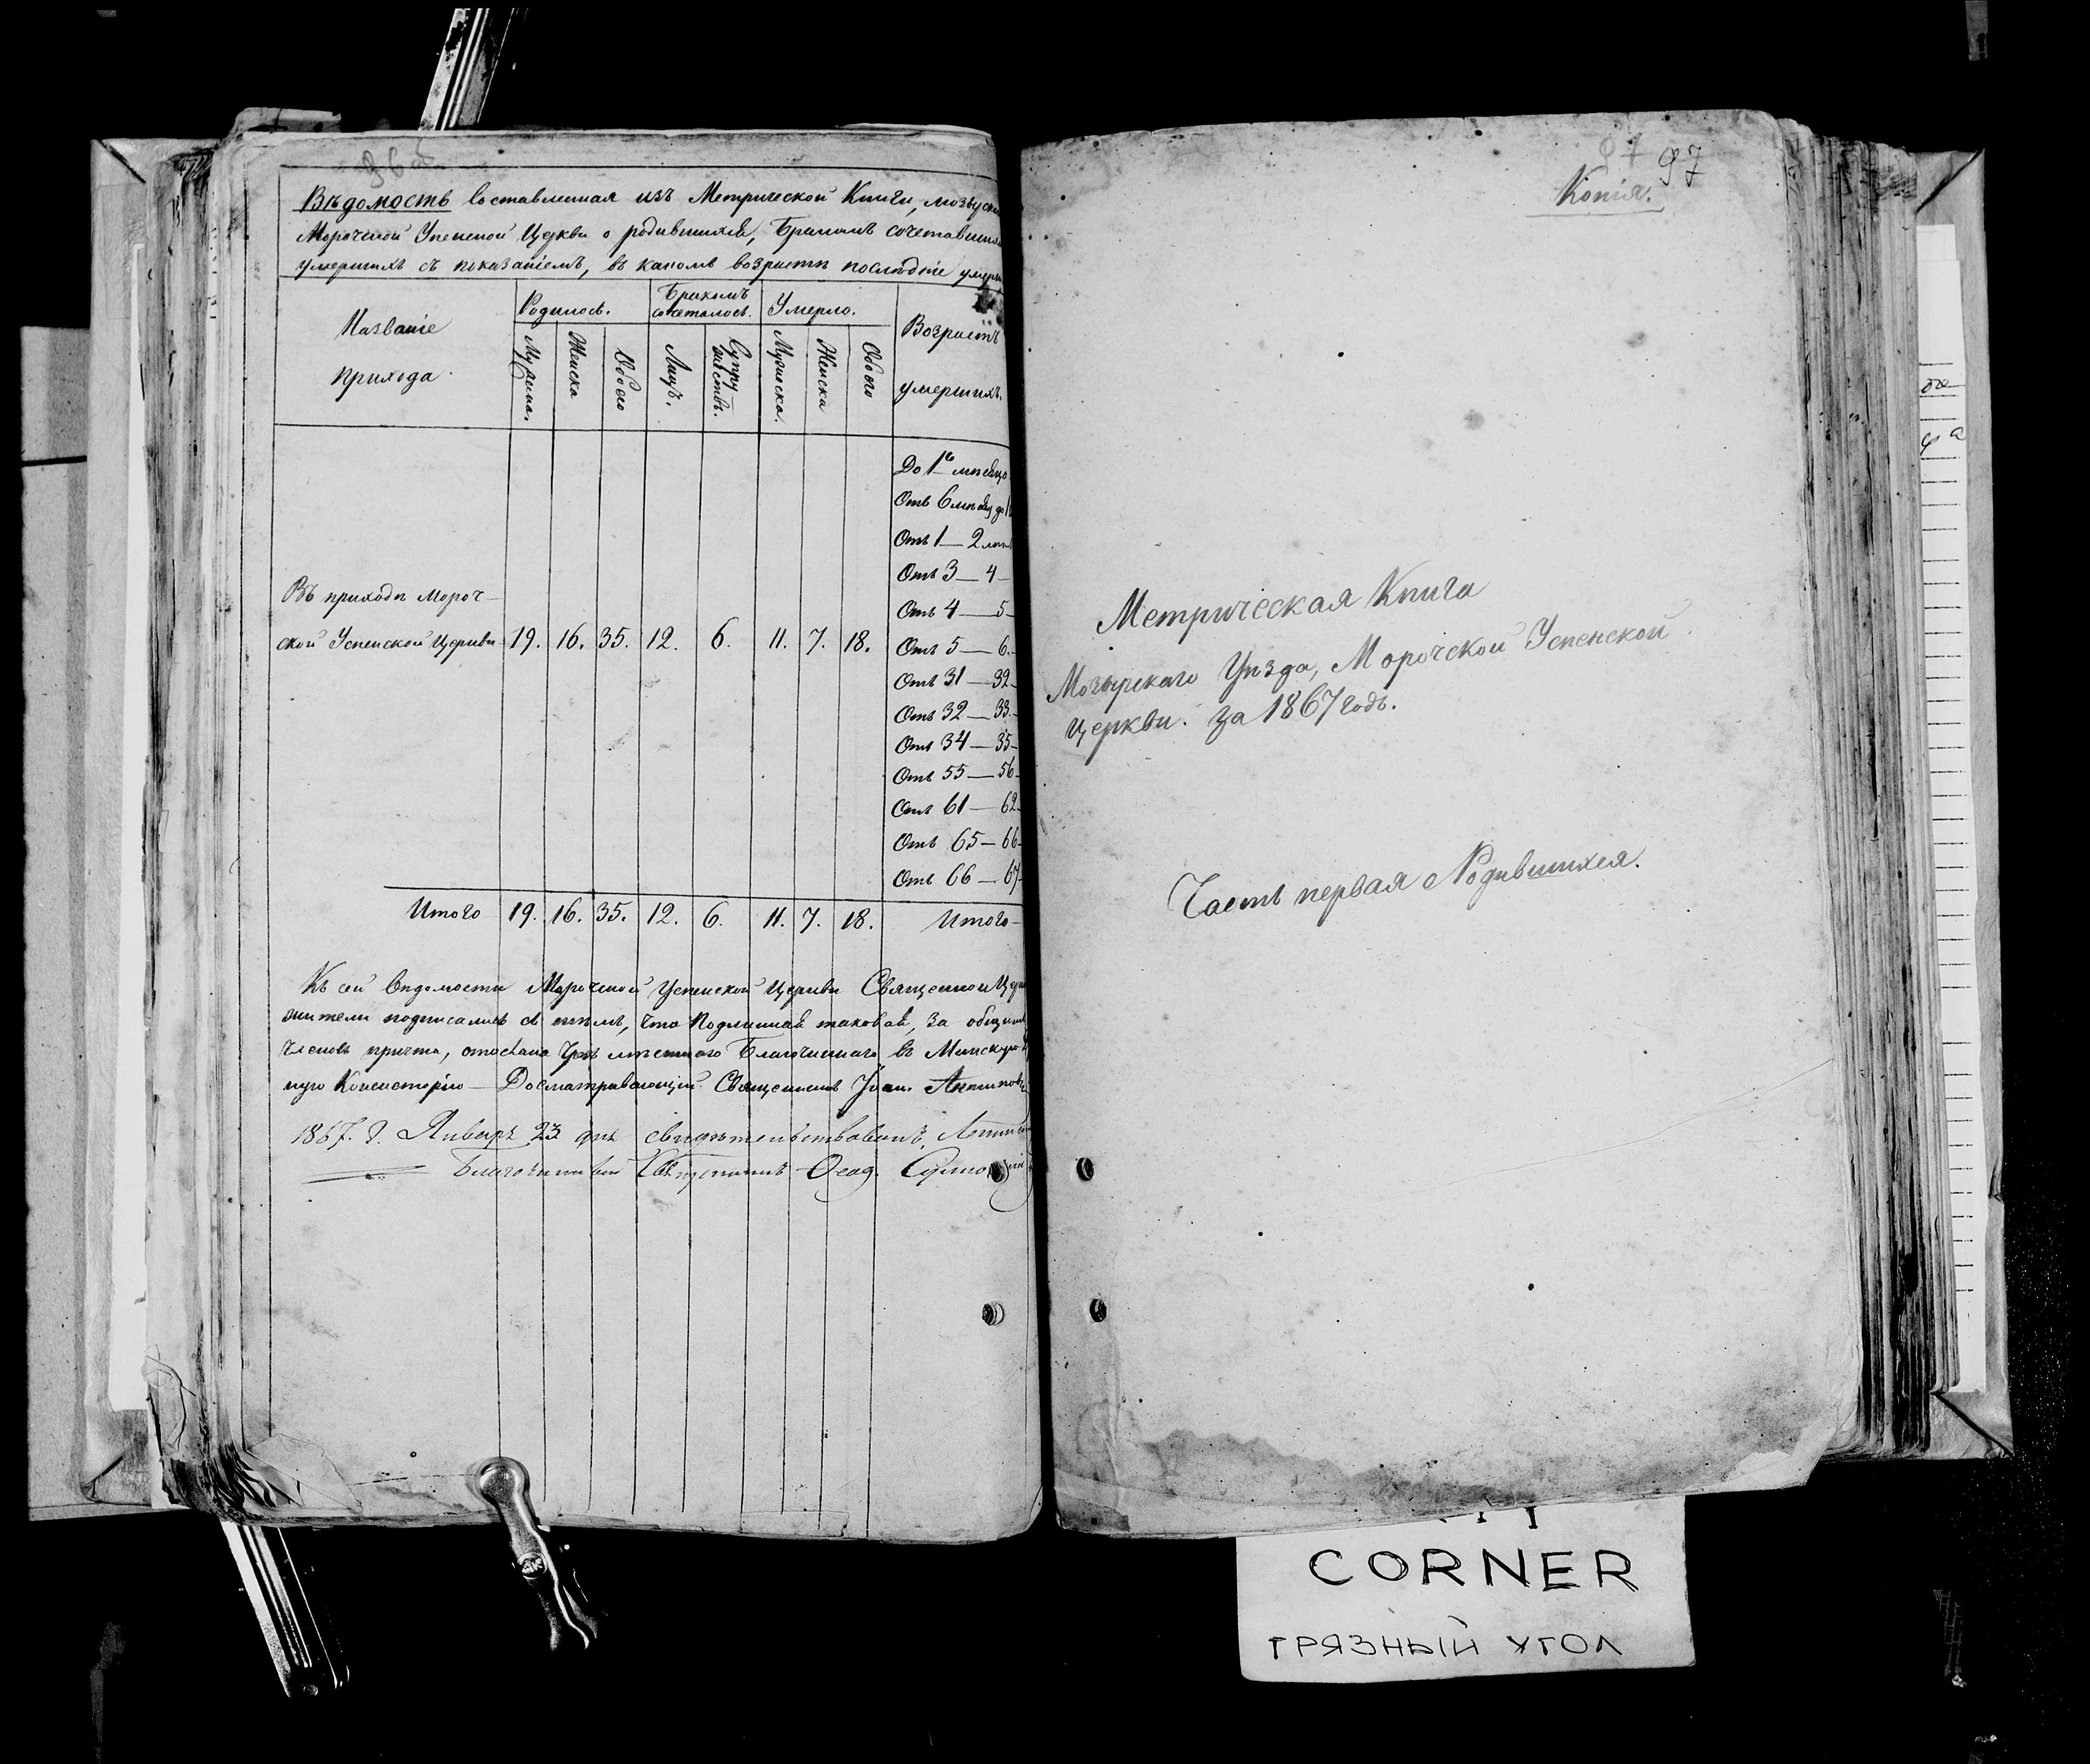 Вѣдомость составленная изъ Метрической Книги, мозырск
Морочской Успенской Церкви о родившихся, Бракомъ сочетавшихся
умершихъ съ показаніемъ, въ какомъ возрастѣ послѣдніе умерли
Названіе прихода.
Родилось.
Бракомъ сочеталось.
Умерло.
Возрастъ умершихъ.
Мужеска.
Женска
Обоего
Лицъ.
Супружествъ.
Мужеска.
Женска
Обоего
До 1го мѣсяца
Отъ 6 мѣсяц до 1
Отъ 1 — 2 лѣтъ
Отъ 3 — 4 —
Отъ 4 — 5 —
Въ приходѣ Мороч-
ской Успенской Церкви 19. 16. 35. 12. 6. 11. 7. 18. Отъ 5 — 6. —
Отъ 31 — 32 —
Отъ 32 — 33. —
Отъ 34 — 35 —
Отъ 55 — 56 —
Отъ 61 — 62 —
Отъ 65 — 66 —
Отъ 66 — 67 —
Итого 19. 16. 35. 12. 6. 11. 7. 18. Итого —
Къ сей вѣдомости Морочской Успенской Церкви Священно и Цер
жители подписались въ томъ, что подлинная таковая, за общимъ
членовъ причта, отослана чрезъ мѣстнаго Благочиннаго въ Минскую
ную Консисторію — Досматривающій Священникъ Іоан.
1867. г. Январъ 23 дня свидѣтельствовалъ,
Благочинный Священникъ
97
97
Копія.
Метрическая Книга
Мозырскаго Уѣзда, Морочской Успенской
Церкви. за 1867 годъ.
Часть первая о Родившихся.
CORNER
ГРЯЗНЫЙ УГОЛ